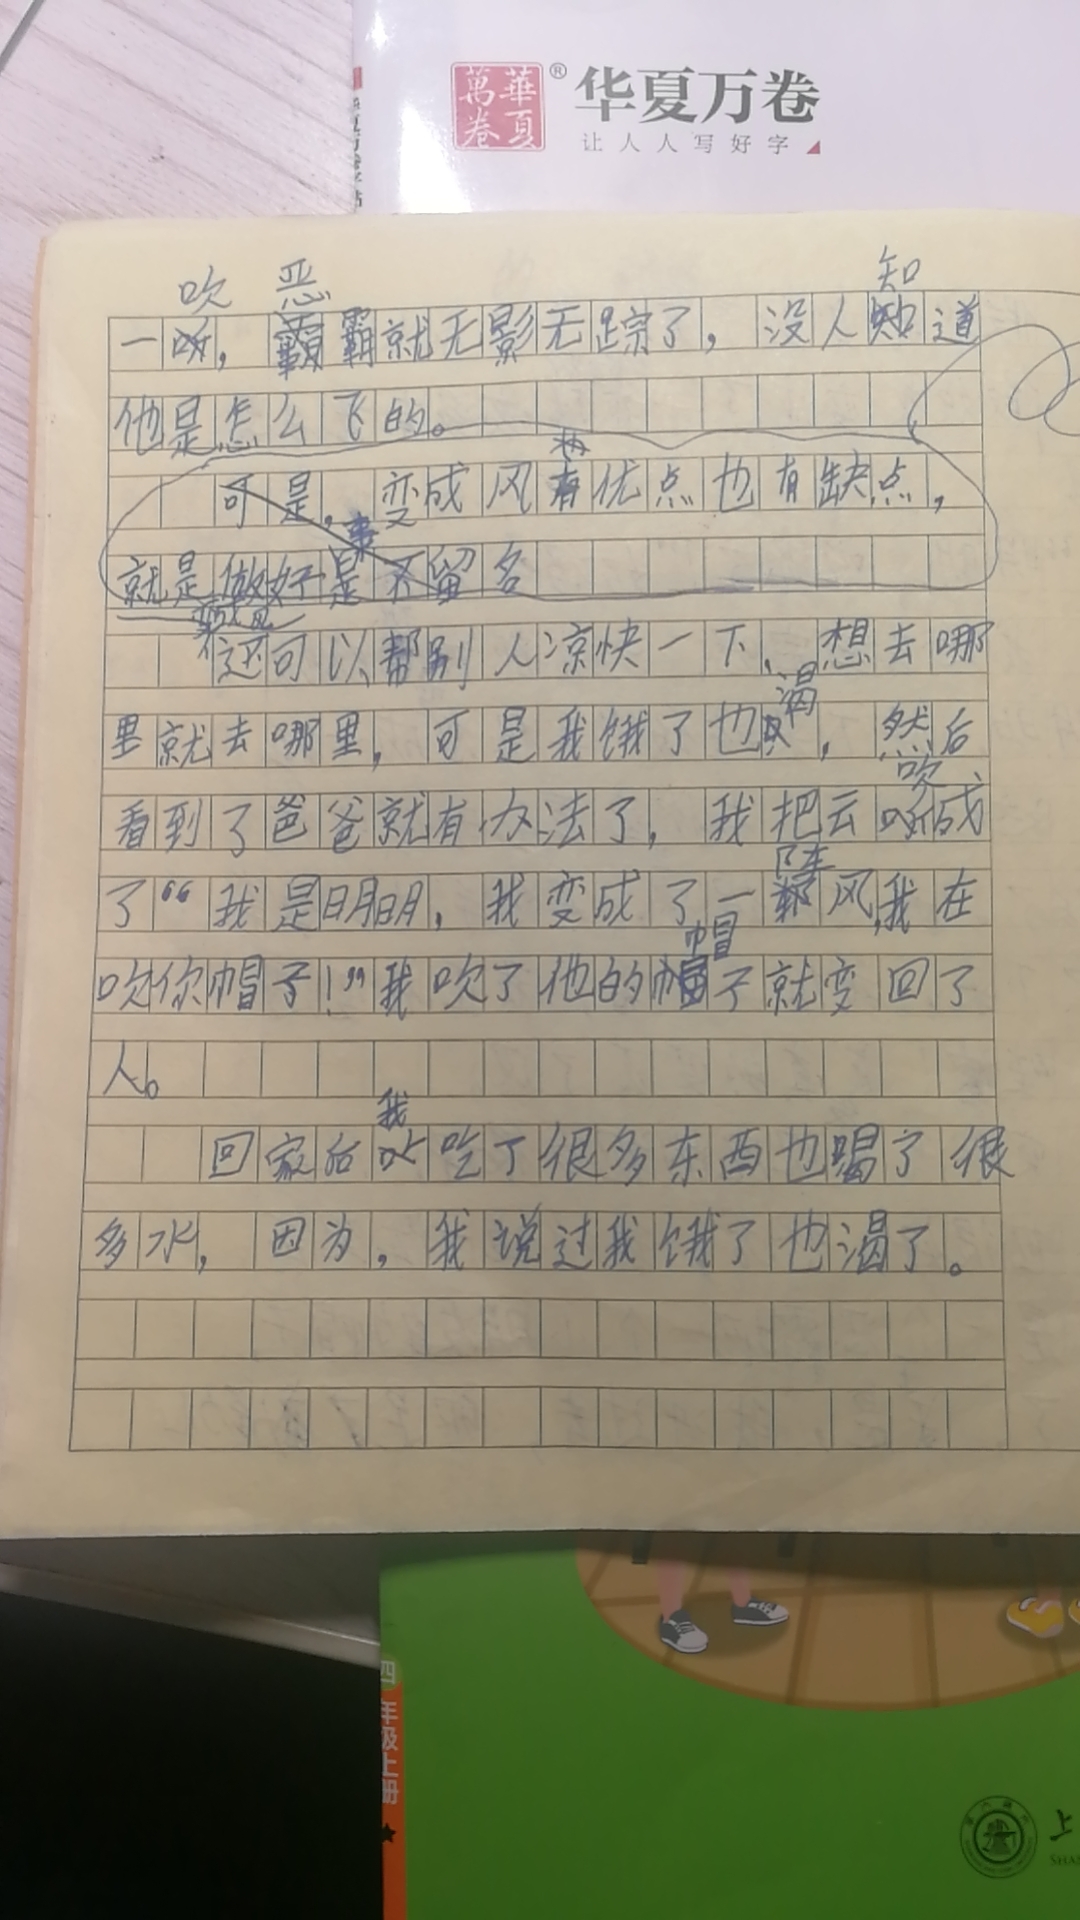 萬華
卷夏
®
华夏万卷
让人人写好字
吹 恶 知
一吹,霸霸就无影无踪了,没人知道
他是怎么飞的。
可是,变成风有优点也有缺点,
事
就是做好是不留名
还可以帮别人凉快一下、想去哪
渴
里就去哪里,可是我饿了也,然后
吹
看到了爸爸就有办法了,我把云成
阵
了“我是明明,我变成了一风,我在
帽
吹你帽子!”我吹了他的帽子就变回了
人。
我
回家后吃了很多东西也喝了很
多水,因为,我说过我饿了也渴了。
四年级上册
上
SHA